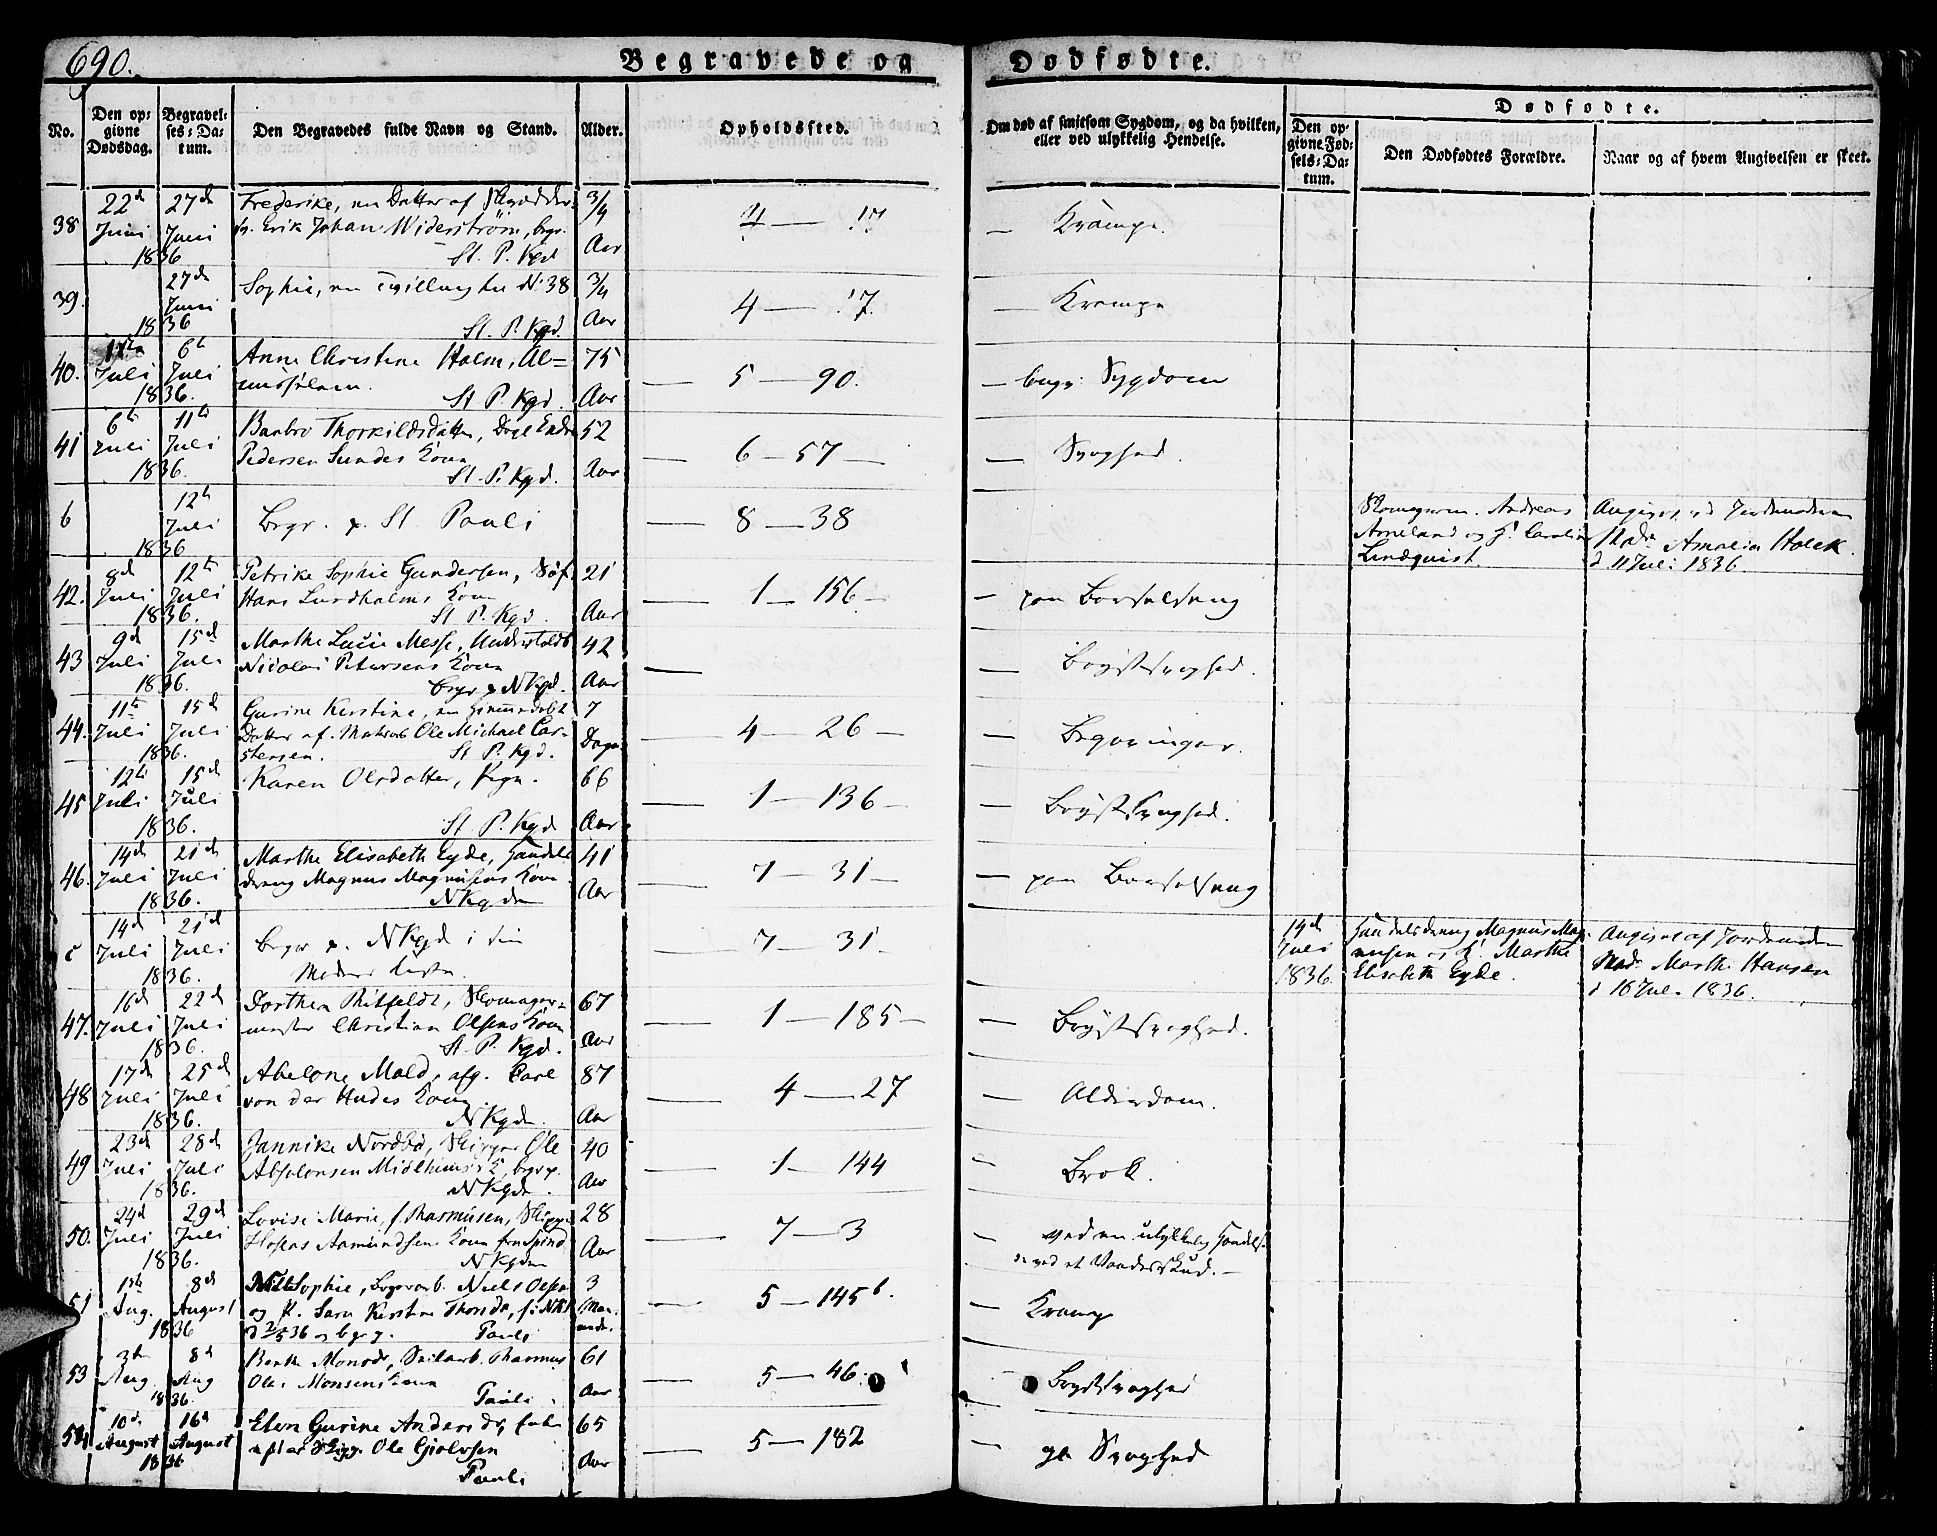 690.
Begravede og Dødfødte.
No.
Den opgivne Dødsdag.
Begravelses-Datum.
Den Begravedes fulde Navn og Stand.
Alder.
Opholdssted.
Om død af smitsom Sygdom, og da hvilken,
eller ved ulykkelig Hendelse.
Dødfødte.
Den opgivne Fødsels-Datum.
Den Dødfødtes Forældre.
Naar og af hvem Angivelsen er skeet.
38 22d Juni 27d Juni 1836
Frederike, en Datter af
Erik Johan Widerstrøm, begr.
St. P. Kgd
3/4 Aar
4 — 17
— Krampe.
39. 27d Juni 1836
Sophie, en Tvilling til N: 38
St. P. Kgd.
3/4 Aar
4 — 17.
— Krampe
40. Juli 6t Juli 1836.
Anne Christine Holm, Al-
misselem.
St P. Kgd.
75 Aar
— 5 — 90.
— Sygdom
41 6t Juli 11t Juli 1836.
Barbro Thorkildsdatter,
Pedersen Sundes Kone
St. P. Kgd.
52 Aar
— 6 — 57 —
— Svaghed.
6 12t Juli 1836
Begr. p. St Pauli
— 8 — 38
Andreas
Arneland og H. Caroline
Lindqvist
Angivet ved Jordmoderen
Mad. Amalia Holck.
d 11 Juli 1836.
42. 8d Juli 12t Juli 1836.
Petrike Sophie Gundersen,
Hans Lundholms Kone
St P. Kgd.
21 Aar
— 1 — 156 —
— paa Barselseng
43 9d Juli 15d Juli 1836.
Marthe Lucie Messe,
Nicolai Petersens Kone
begr p NKgd.
42 Aar
—
— Brystsvaghed.
44. 11t Juli 15d Juli 1836.
Gurine Kerstine, en hjemmedøbt
Datter af Matros Ole Michael Car-
stensen. St P. Kgd.
7 Dage
— 4 — 26 —
—
45 12t Juli 15d Juli 1836.
Karen Olsdatter, Pige.
St P. Kgd
66 Aar
— 1 — 136 —
— Brystsvaghed.
46. 14d Juli 21d Juli 1836.
Marthe Elisabeth Eyde, Handels-
dreng Magnus Magnusens Kone
NKgden
41 Aar
— 7 — 31 —
— paa Barselseng
14d Juli 21d Juli 1836.
Begr p. NKgd i sin
Moders Kiste.
— 7 — 31.
14d Juli 1836.
Handelsdreng Magnus Mag-
nusen og H. Marthe
Elisabeth Eyde.
Angivet af Jordemoder
Mad. Marthe Hansen
d 16 Juli 1836.
47. 16d Juli 22d Juli 1836.
Dorthea Ritfeldt, Skomager-
mester Christian Olsens Kone
St. P. Kgd.
67 Aar
— 1 — 185 —
— Brystsvaghed.
48 17d Juli 25d Juli 1836.
Abelone Mald, afg. Carl
von der Hudes Kone
NKgden
87 Aar
— 4 — 27
— Alderdom.
49 23d Juli 28d Juli 1836.
Jannike Nordbø, Skipper Ole
Absolonsen begr p.
NKgden.
40 Aar
— 1 — 144
— Brok.
50. 24d Juli 29d Juli 1836.
Lovise Marie, f. Rasmusen,
Aamundsens Kone
NKgden
28 Aar
— 7 — 3
— ved en ulykkelig Hændelse
ved et Vaadeskud. —
51 1ste Aug. 8d August 1836
Sophie, Niels Olsen
og H. Sara Kirstine
d 2/5 36 begr p. Pauli
3 Maaneder.
— 5 — 145b.
— Krampe
53 3die Aug. 8d Aug 1836.
Berthe Monsdr, Seilarb. Rasmus
Ole Monsens Kone
Pauli.
61 Aar
— 5 — 46.
— Brystsvaghed
54 10d August 16d August 1836
Elen Gurine Andersdr, Enke
efter Skipp. Ole Gjølvsen
Pauli
65 Aar
— 5 — 182
— Svaghed